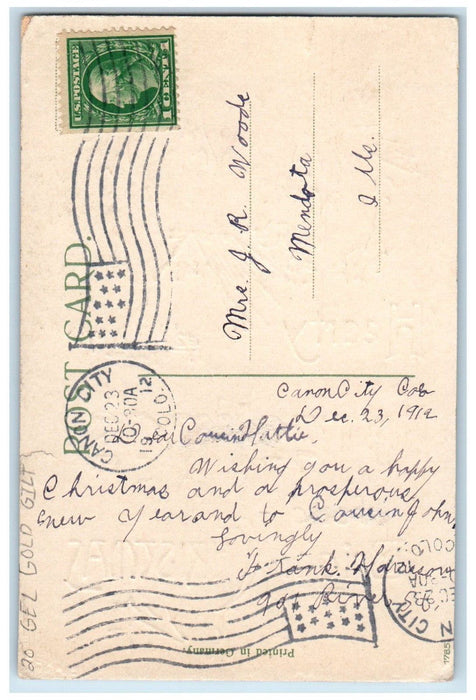 U.S. POSTAGE
1 CENT 1
POST CARD.
CANON CITY
COLO.
DEC 23
10-30A
1912
Mrs J. R. Woods
Mendota
Ills.
Canon City Colo
Dec. 23, 1912
Dear Cousin Hattie,
Wishing you a happy
Christmas and a prosperous
new year and to Cousin John,
Lovingly
Frank
901 River
CITY
COLO.
Hearty
20 GEL (GOLD GILT)
Printed in Germany.